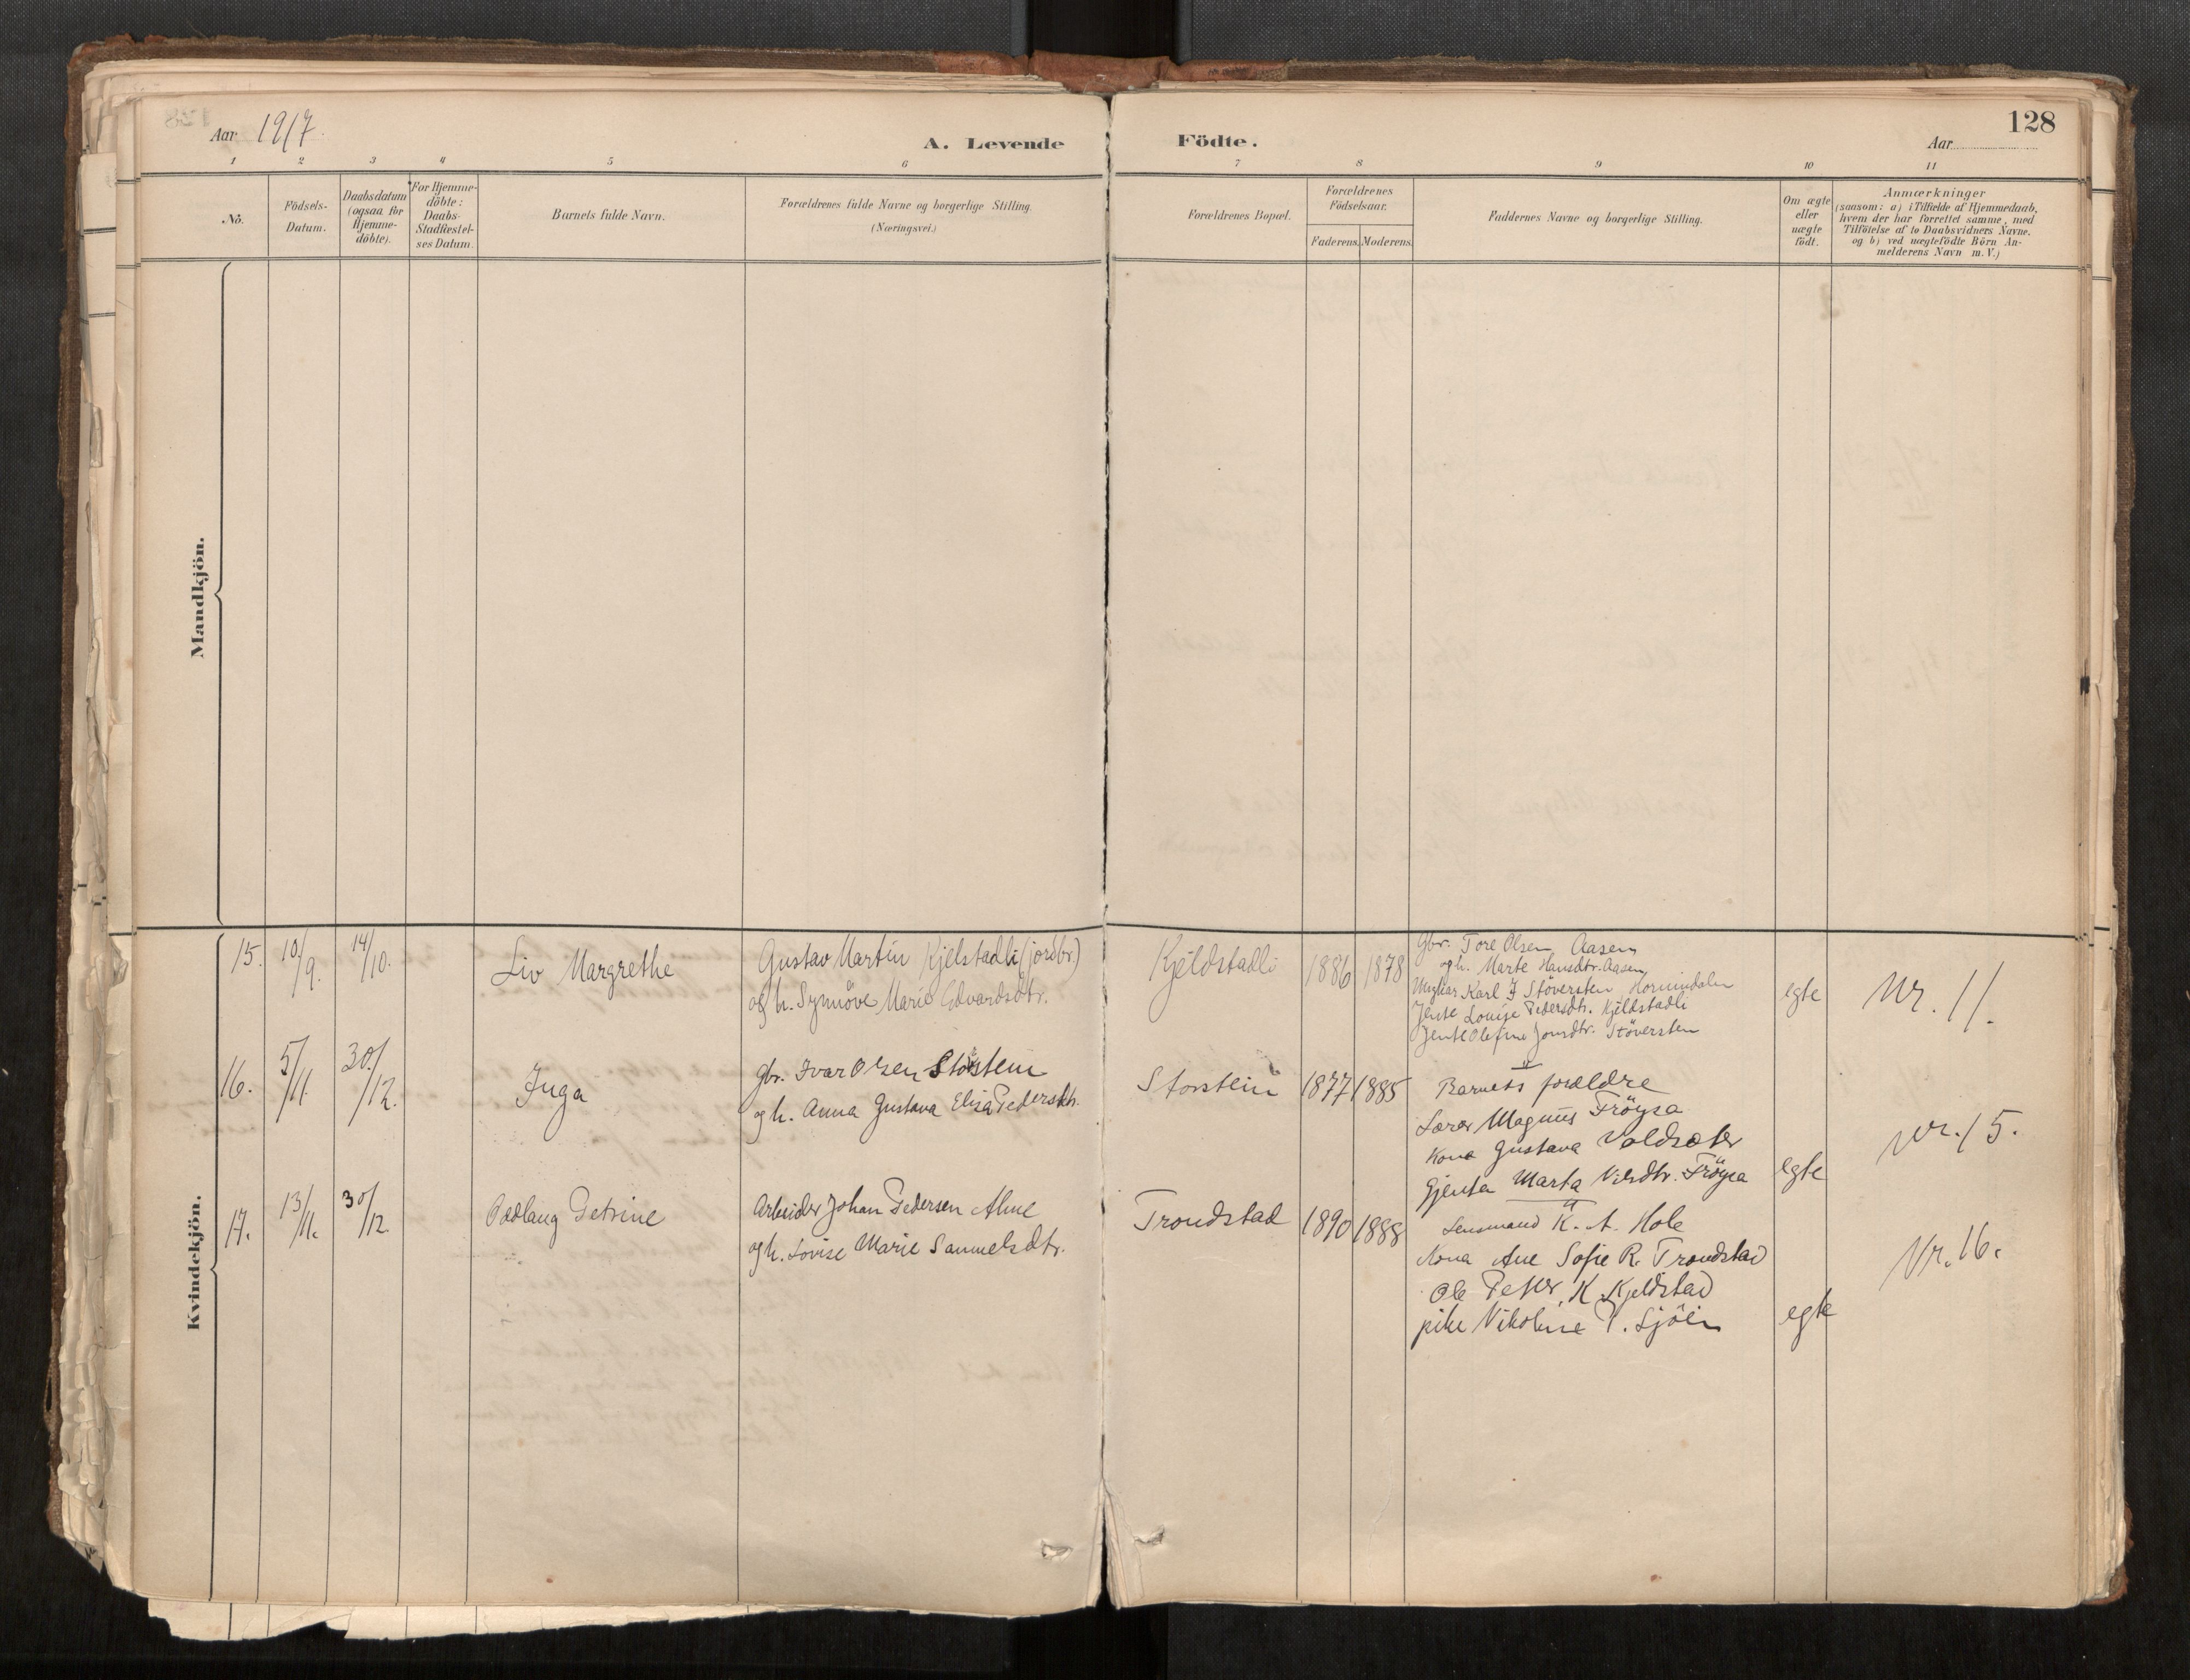 128
Aar 1917.
A. Levende Födte.
Aar
1 2 3 4 5 6 7 8 9 10 11
No.
Födsels-
Datum.
Daabsdatum
(ogsaa for
Hjemme-
döbte).
For Hjemme-
döbte:
Daabs-
Stadfæstel-
ses Datum.
Barnets fulde Navn.
Forældrenes fulde Navne og borgerlige Stilling.
(Næringsvei.)
Forældrenes Bopæl.
Forældrenes
Födselsaar.
Faderens. Moderens.
Faddernes Navne og borgerlige Stilling.
Om ægte
eller
uægte
födt.
Anmærkninger
(saasom: a) i Tilfælde af Hjemmedaab,
hvem der har forrettet samme, med
Tilföielse af to Daabsvidners Navne.
og b) ved uægtefödte Börn An-
melderens Navn m. V.)
Mandkjön.
Kvindekjön.
15. 10/9. 14/10. Liv Margrethe
Gustav Martin Kjelstadli (jordbr.)
og h. Synnöve Marie Edvardsdtr.
Kjeldstadli 1886 1878
Gbr. Tore Olsen Aasen
og h. Marte Hansdtr. Aasen
Ungkar Karl J Stöversten Hornindalen
Jente Louise Pedersdtr. Kjeldstadli
Jente Olefine Jonsdtr. Stöversten
egte Nr. 11.
16. 5/11. 30/12. Inga
gbr. Ivar Olsen Storstein
og h. Anna Gustava Elisa Pedersdtr.
Storstein 1877 1885
Barnets forældre
Lærer Magnus Fröysa
Kona Gustava Voldsæter
Gjenta Marta Nilsdtr. Fröysa
egte Nr. 15.
17. 13/11. 30/12 Oddlaug Petrine
Arbeider Johan Pedersen Alme
og h. Lovise Marie Samuelsdtr.
Trondstad 1890 1888
Lensmand K. A. Hole
Kona Ane Sofie R. Trondstad
Ole Petter K. Kjeldstad
pike Nikoline P. Sjöen
egte Nr. 16.